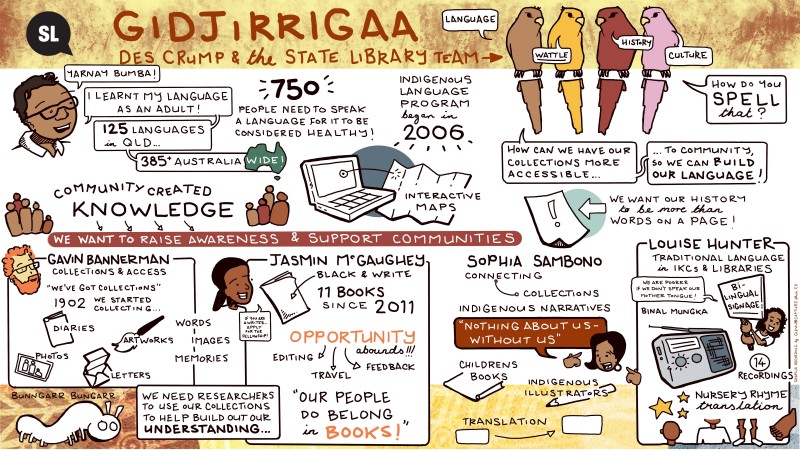 SL
GIDJIRRIGAA
DES CRUMP & the STATE LIBRARY TEAM
LANGUAGE
WATTLE
HISTORY
CULTURE
YARNAY BUMBA!
I LEARNT MY LANGUAGE
AS AN ADULT!
125 LANGUAGES
IN QLD...
385+ AUSTRALIA WIDE!
750
PEOPLE NEED TO SPEAK
A LANGUAGE FOR IT TO BE
CONSIDERED HEALTHY!
INDIGENOUS
LANGUAGE
PROGRAM
began in
2006
HOW DO YOU
SPELL
that?
HOW CAN WE HAVE OUR
COLLECTIONS MORE
ACCESSIBLE...
... TO COMMUNITY,
SO WE CAN BUILD
OUR LANGUAGE!
COMMUNITY CREATED
KNOWLEDGE
INTERACTIVE
MAPS
WE WANT OUR HISTORY
to be more than
WORDS ON A PAGE!
WE WANT TO RAISE AWARENESS & SUPPORT COMMUNITIES
GAVIN BANNERMAN
COLLECTIONS & ACCESS
"WE'VE GOT COLLECTIONS"
1902 WE STARTED
COLLECTING...
DIARIES
ARTWORKS
PHOTOS
LETTERS
WORDS
IMAGES
MEMORIES
BUNNGARR BUNGARR
WE NEED RESEARCHERS
TO USE OUR COLLECTIONS
TO HELP BUILD OUT OUR
UNDERSTANDING...
JASMIN McGAUGHEY
BLACK & WRITE
11 BOOKS
SINCE 2011
IF YOU ARE
A WRITER...
APPLY
FOR THE
FELLOWSHIP!
OPPORTUNITY
abounds!!!
EDITING
TRAVEL
FEEDBACK
"OUR PEOPLE
DO BELONG
in BOOKS!"
SOPHIA SAMBONO
CONNECTING
COLLECTIONS
INDIGENOUS NARRATIVES
"NOTHING ABOUT US -
WITHOUT US"
CHILDRENS
BOOKS
INDIGENOUS
ILLUSTRATORS
TRANSLATION
LOUISE HUNTER
TRADITIONAL LANGUAGE
in IKCs & LIBRARIES
WE ARE POORER
IF WE DON'T SPEAK OUR
MOTHER TONGUE!
BI-
LINGUAL
SIGNAGE!
BINAL MUNGKA
14
RECORDINGS
NURSERY RHYME
translation